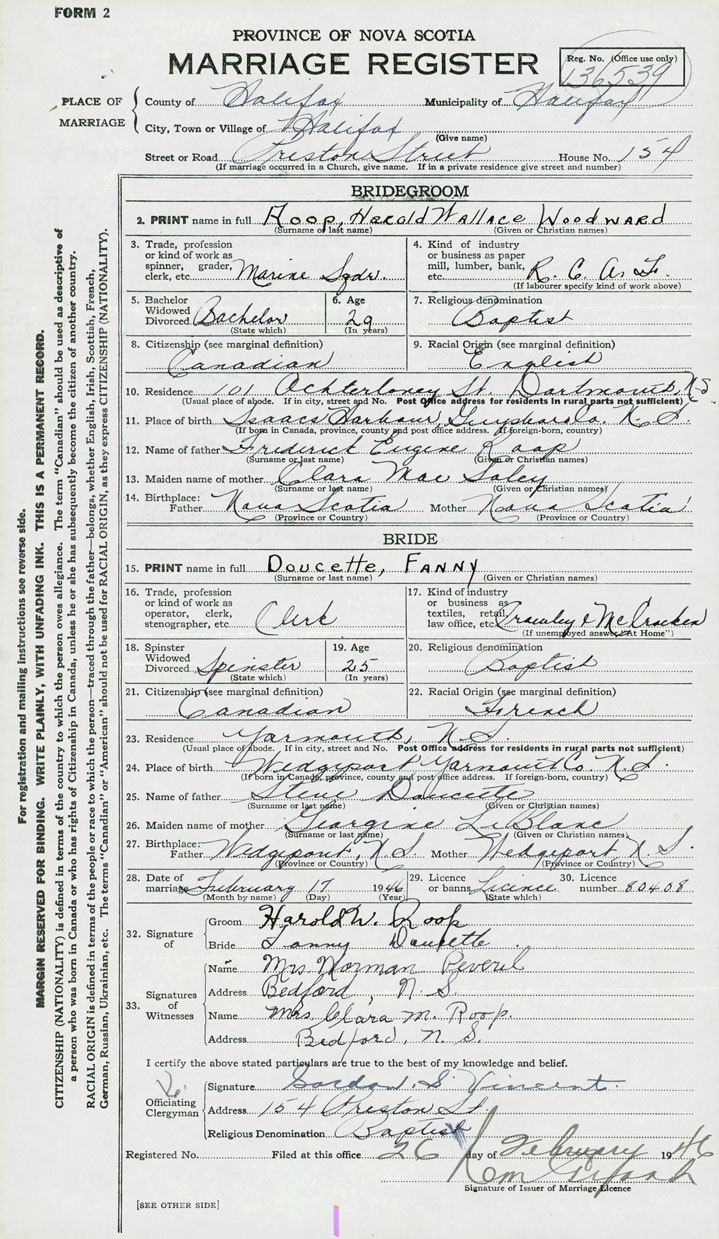 FORM 2
PROVINCE OF NOVA SCOTIA
MARRIAGE REGISTER
Reg. No. (Office use only)
136539
PLACE OF MARRIAGE
County of Halifax Municipality of Halifax
City, Town or Village of Halifax
(Give name)
Street or Road Preston Street House No. 154
(If marriage occurred in a Church, give name. If in a private residence give street and number)
BRIDEGROOM
2. PRINT name in full Roop, Harold Wallace Woodward
(Surname or last name) (Given or Christian names)
3. Trade, profession or kind of work as spinner, grader, clerk, etc. Marine Sqdr.
4. Kind of industry or business as paper mill, lumber, bank, etc. R. C. A. F.
(If labourer specify kind of work above)
5. Bachelor Widowed Divorced Bachelor
(State which)
6. Age 29
(In years)
7. Religious denomination Baptist
8. Citizenship (see marginal definition) Canadian
9. Racial Origin (see marginal definition) English
10. Residence 101 Ochterloney St. Dartmouth, N.S.
(Usual place of abode. If in city, street and No. Post Office address for residents in rural parts not sufficient)
11. Place of birth Isaacs Harbour, Guysboro Co. N. S.
(If born in Canada, province, county and post office address. If foreign-born, country)
12. Name of father Frederick Eugene Roop
(Surname or last name) (Given or Christian names)
13. Maiden name of mother Clara Mae
(Surname or last name) (Given or Christian names)
14. Birthplace: Father Nova Scotia Mother Nova Scotia
(Province or Country) (Province or Country)
BRIDE
15. PRINT name in full Doucette, Fanny
(Surname or last name) (Given or Christian names)
16. Trade, profession or kind of work as operator, clerk, stenographer, etc. Clerk
17. Kind of industry or business as textiles, retail, law office, etc. & McCracken
(If unemployed answer "At Home")
18. Spinster Widowed Divorced Spinster
(State which)
19. Age 25
(In years)
20. Religious denomination Baptist
21. Citizenship (see marginal definition) Canadian
22. Racial Origin (see marginal definition) French
23. Residence Yarmouth, N.S.
(Usual place of abode. If in city, street and No. Post Office address for residents in rural parts not sufficient)
24. Place of birth Wedgeport Yarmouth Co. N.S.
(If born in Canada, province, county and post office address. If foreign-born, country)
25. Name of father Steve Doucette
(Surname or last name) (Given or Christian names)
26. Maiden name of mother Georgine LeBlanc
(Surname or last name) (Given or Christian names)
27. Birthplace: Father Wedgeport, N.S. Mother Wedgeport N.S.
(Province or Country) (Province or Country)
28. Date of marriage February 17 1946
(Month by name) (Day) (Year)
29. Licence or banns Licence
(State which)
30. Licence number 80408
32. Signature of
Groom Harold W. Roop
Bride Fanny Doucette
33. Signatures of Witnesses
Name Mrs Norman Peveril
Address Bedford, N S
Name Mrs. Clara M. Roop.
Address Bedford, N. S.
I certify the above stated particulars are true to the best of my knowledge and belief.
Officiating Clergyman
Signature Gordon S. Vincent
Address 154 Preston St.
Religious Denomination Baptist
Registered No. Filed at this office 26 day of February 1946
Signature of Issuer of Marriage Licence
[SEE OTHER SIDE]
For registration and mailing instructions see reverse side.
MARGIN RESERVED FOR BINDING. WRITE PLAINLY, WITH UNFADING INK. THIS IS A PERMANENT RECORD.
CITIZENSHIP (NATIONALITY) is defined in terms of the country to which the person owes allegiance. The term "Canadian" should be used as descriptive of
a person who was born in Canada or who has rights of Citizenship in Canada, unless he or she has subsequently become the citizen of another country.
RACIAL ORIGIN is defined in terms of the people or race to which the person—traced through the father—belongs, whether English, Irish, Scottish, French,
German, Russian, Ukrainian, etc. The terms "Canadian" or "American" should not be used for RACIAL ORIGIN, as they express CITIZENSHIP (NATIONALITY).